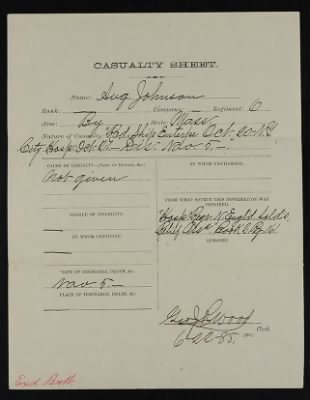 CASUALTY SHEET.
Name: Aug. Johnson
Rank: — Company: — Regiment: 6
Arm: By State: Mass
Nature of Casualty: Ship Oct. 20 N.Y.
City Hosp. Oct. 21 — Disc. Nov. 5. —
CAUSE OF CASUALTY—(Name of Disease, &c.)
Not given
BY WHOM DISCHARGED.
DEGREE OF DISABILITY.
—
FROM WHAT SOURCE THIS INFORMATION WAS OBTAINED.
Hosp. Regr. N. Engld. Solds.
Relief Assn. Book 6. Pg. 161.
BY WHOM CERTIFIED.
—
REMARKS.
DATE OF DISCHARGE, DEATH, &c.
Nov. 5. —
PLACE OF DISCHARGE, DEATH, &c.
—
Geo. Wood
Clerk.
85.
Exd.